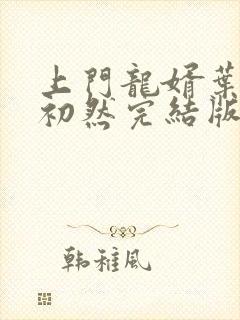 上門龍婿葉
初然完結版
韩稚風